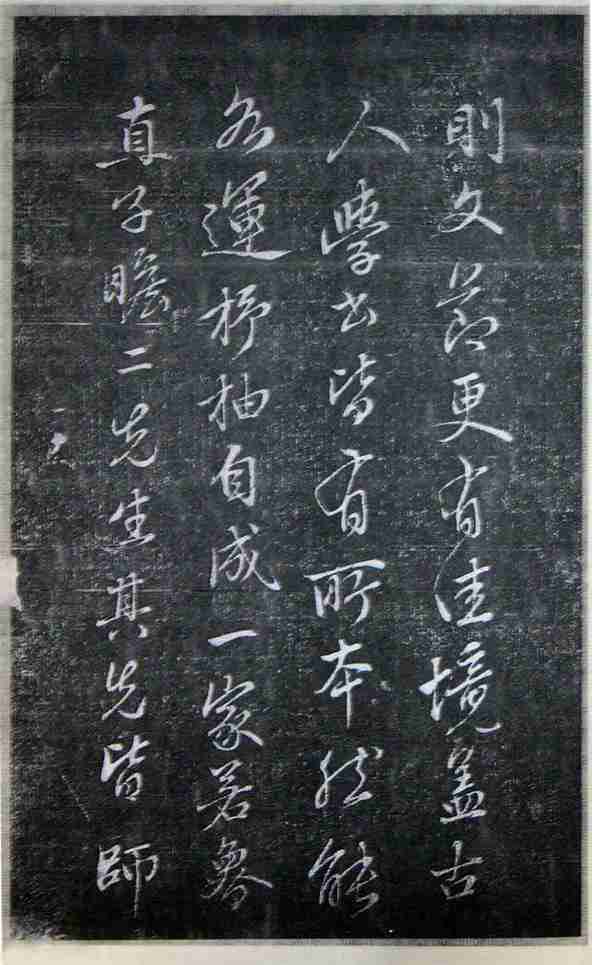 則文節更有佳境盖古
人學書皆有所本然能
各運杼柚自成一家若魯
直子瞻二先生其先皆師